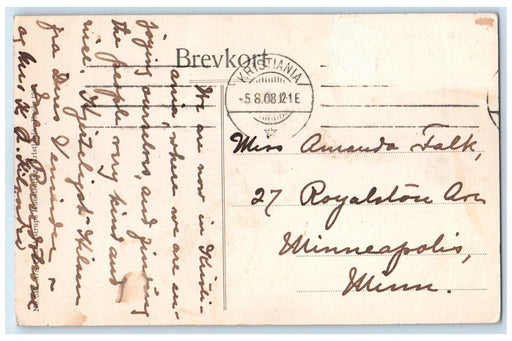 Brevkort
KRISTIANIA
-5.8.08.12 1 E
Miss Amanda Falk,
27 Royalston Ave
Minneapolis,
Minn.
We are now in Kristi-
ania, where we are en-
joying ourselves, and finding
the people very kind and
nice. Hjerteligst Hilsen
fra Deres Veninde